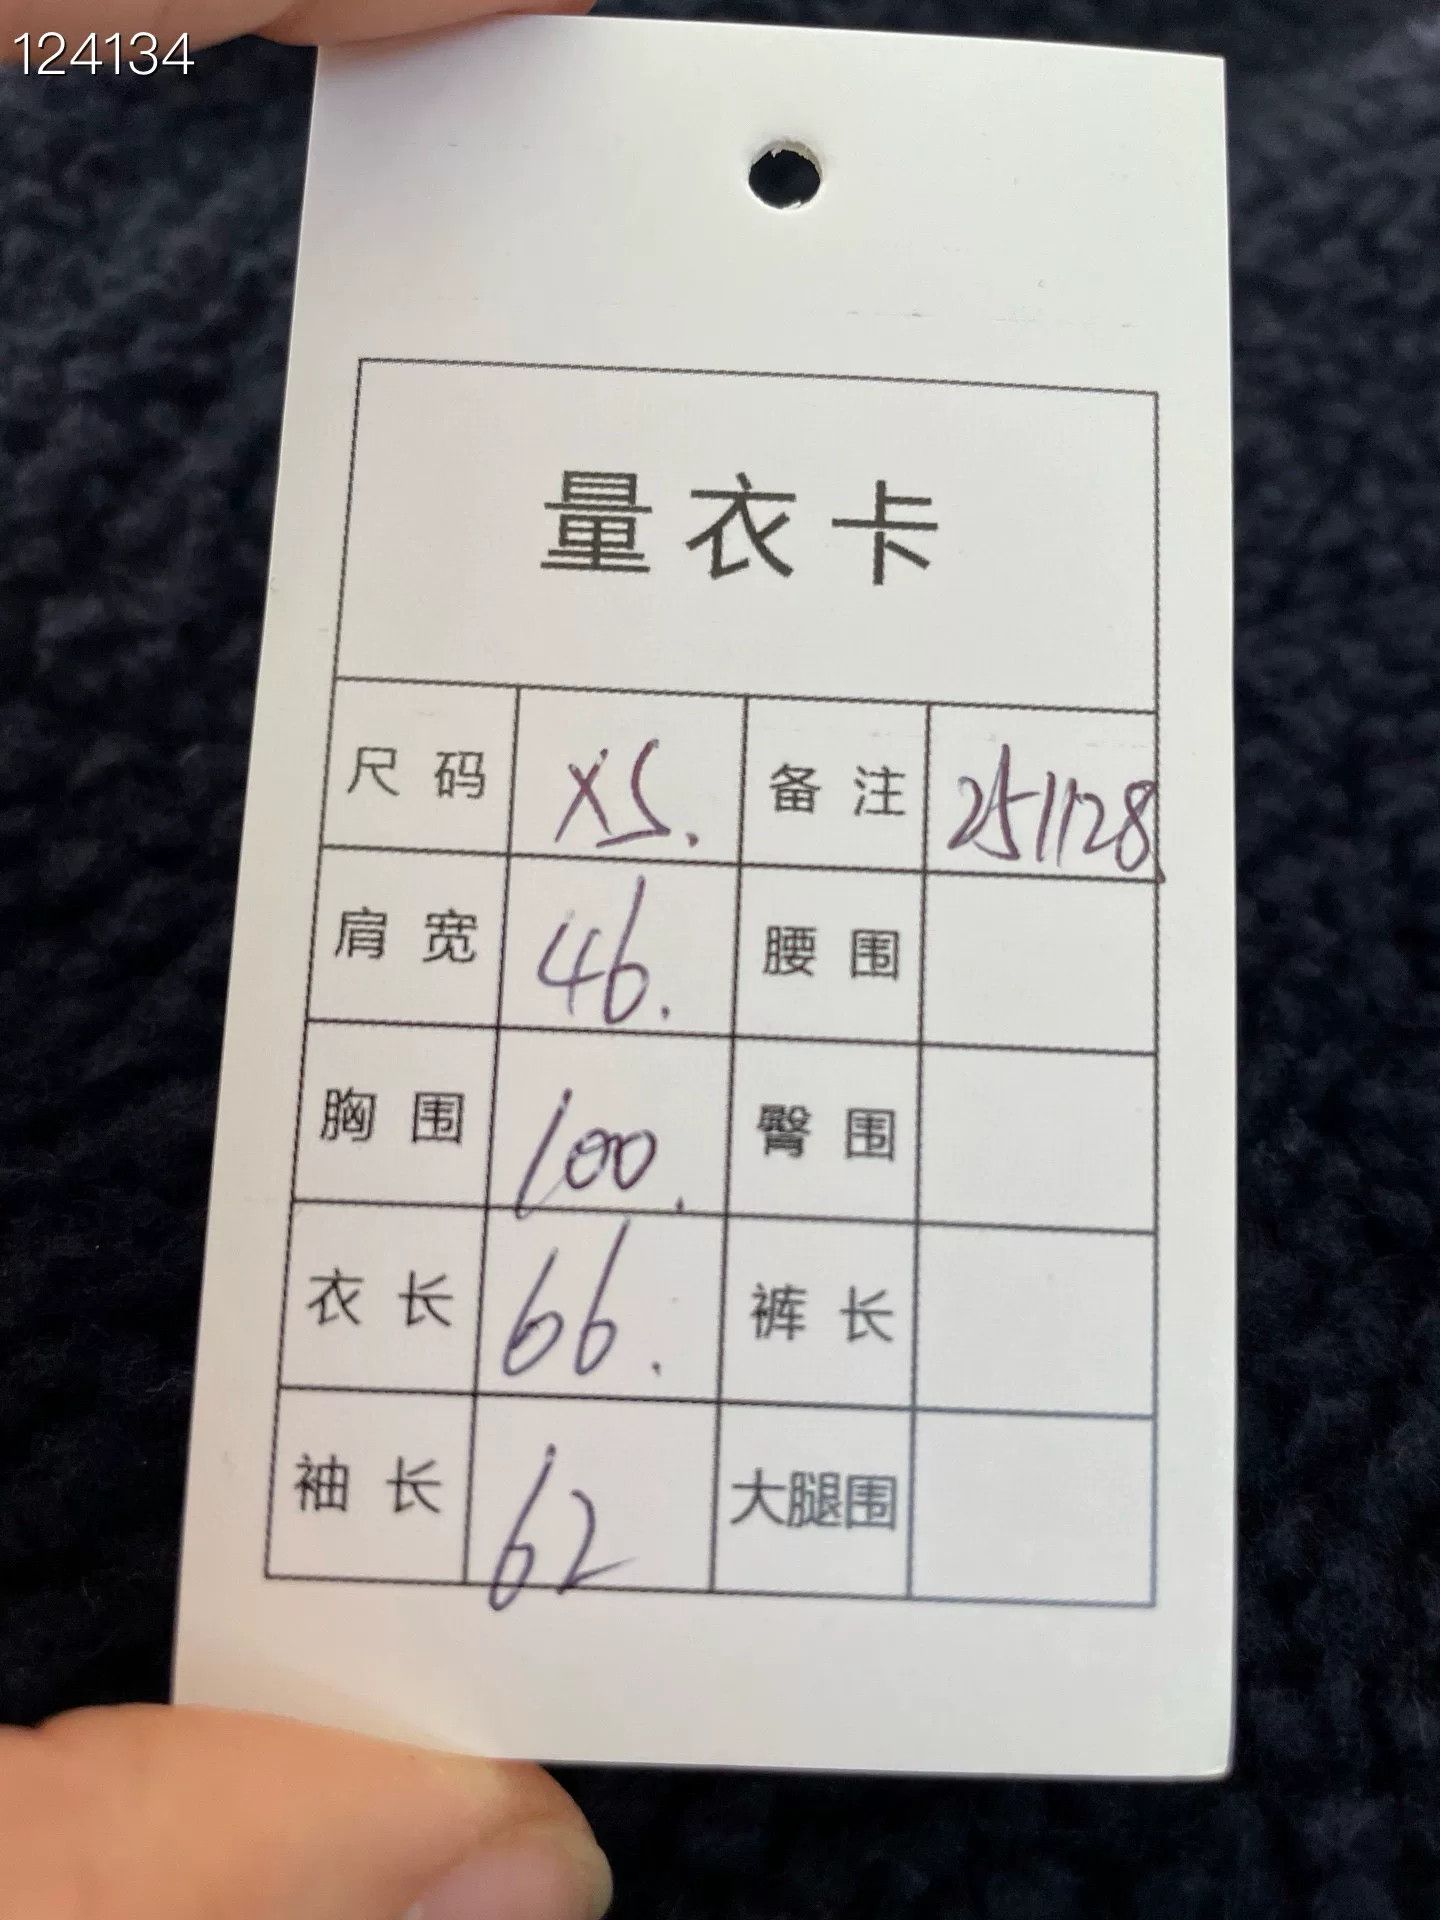 124134
量衣卡
尺码 XS. 备注 251128
肩宽 46. 腰围
胸围 100. 臀围
衣长 66. 裤长
袖长 62 大腿围